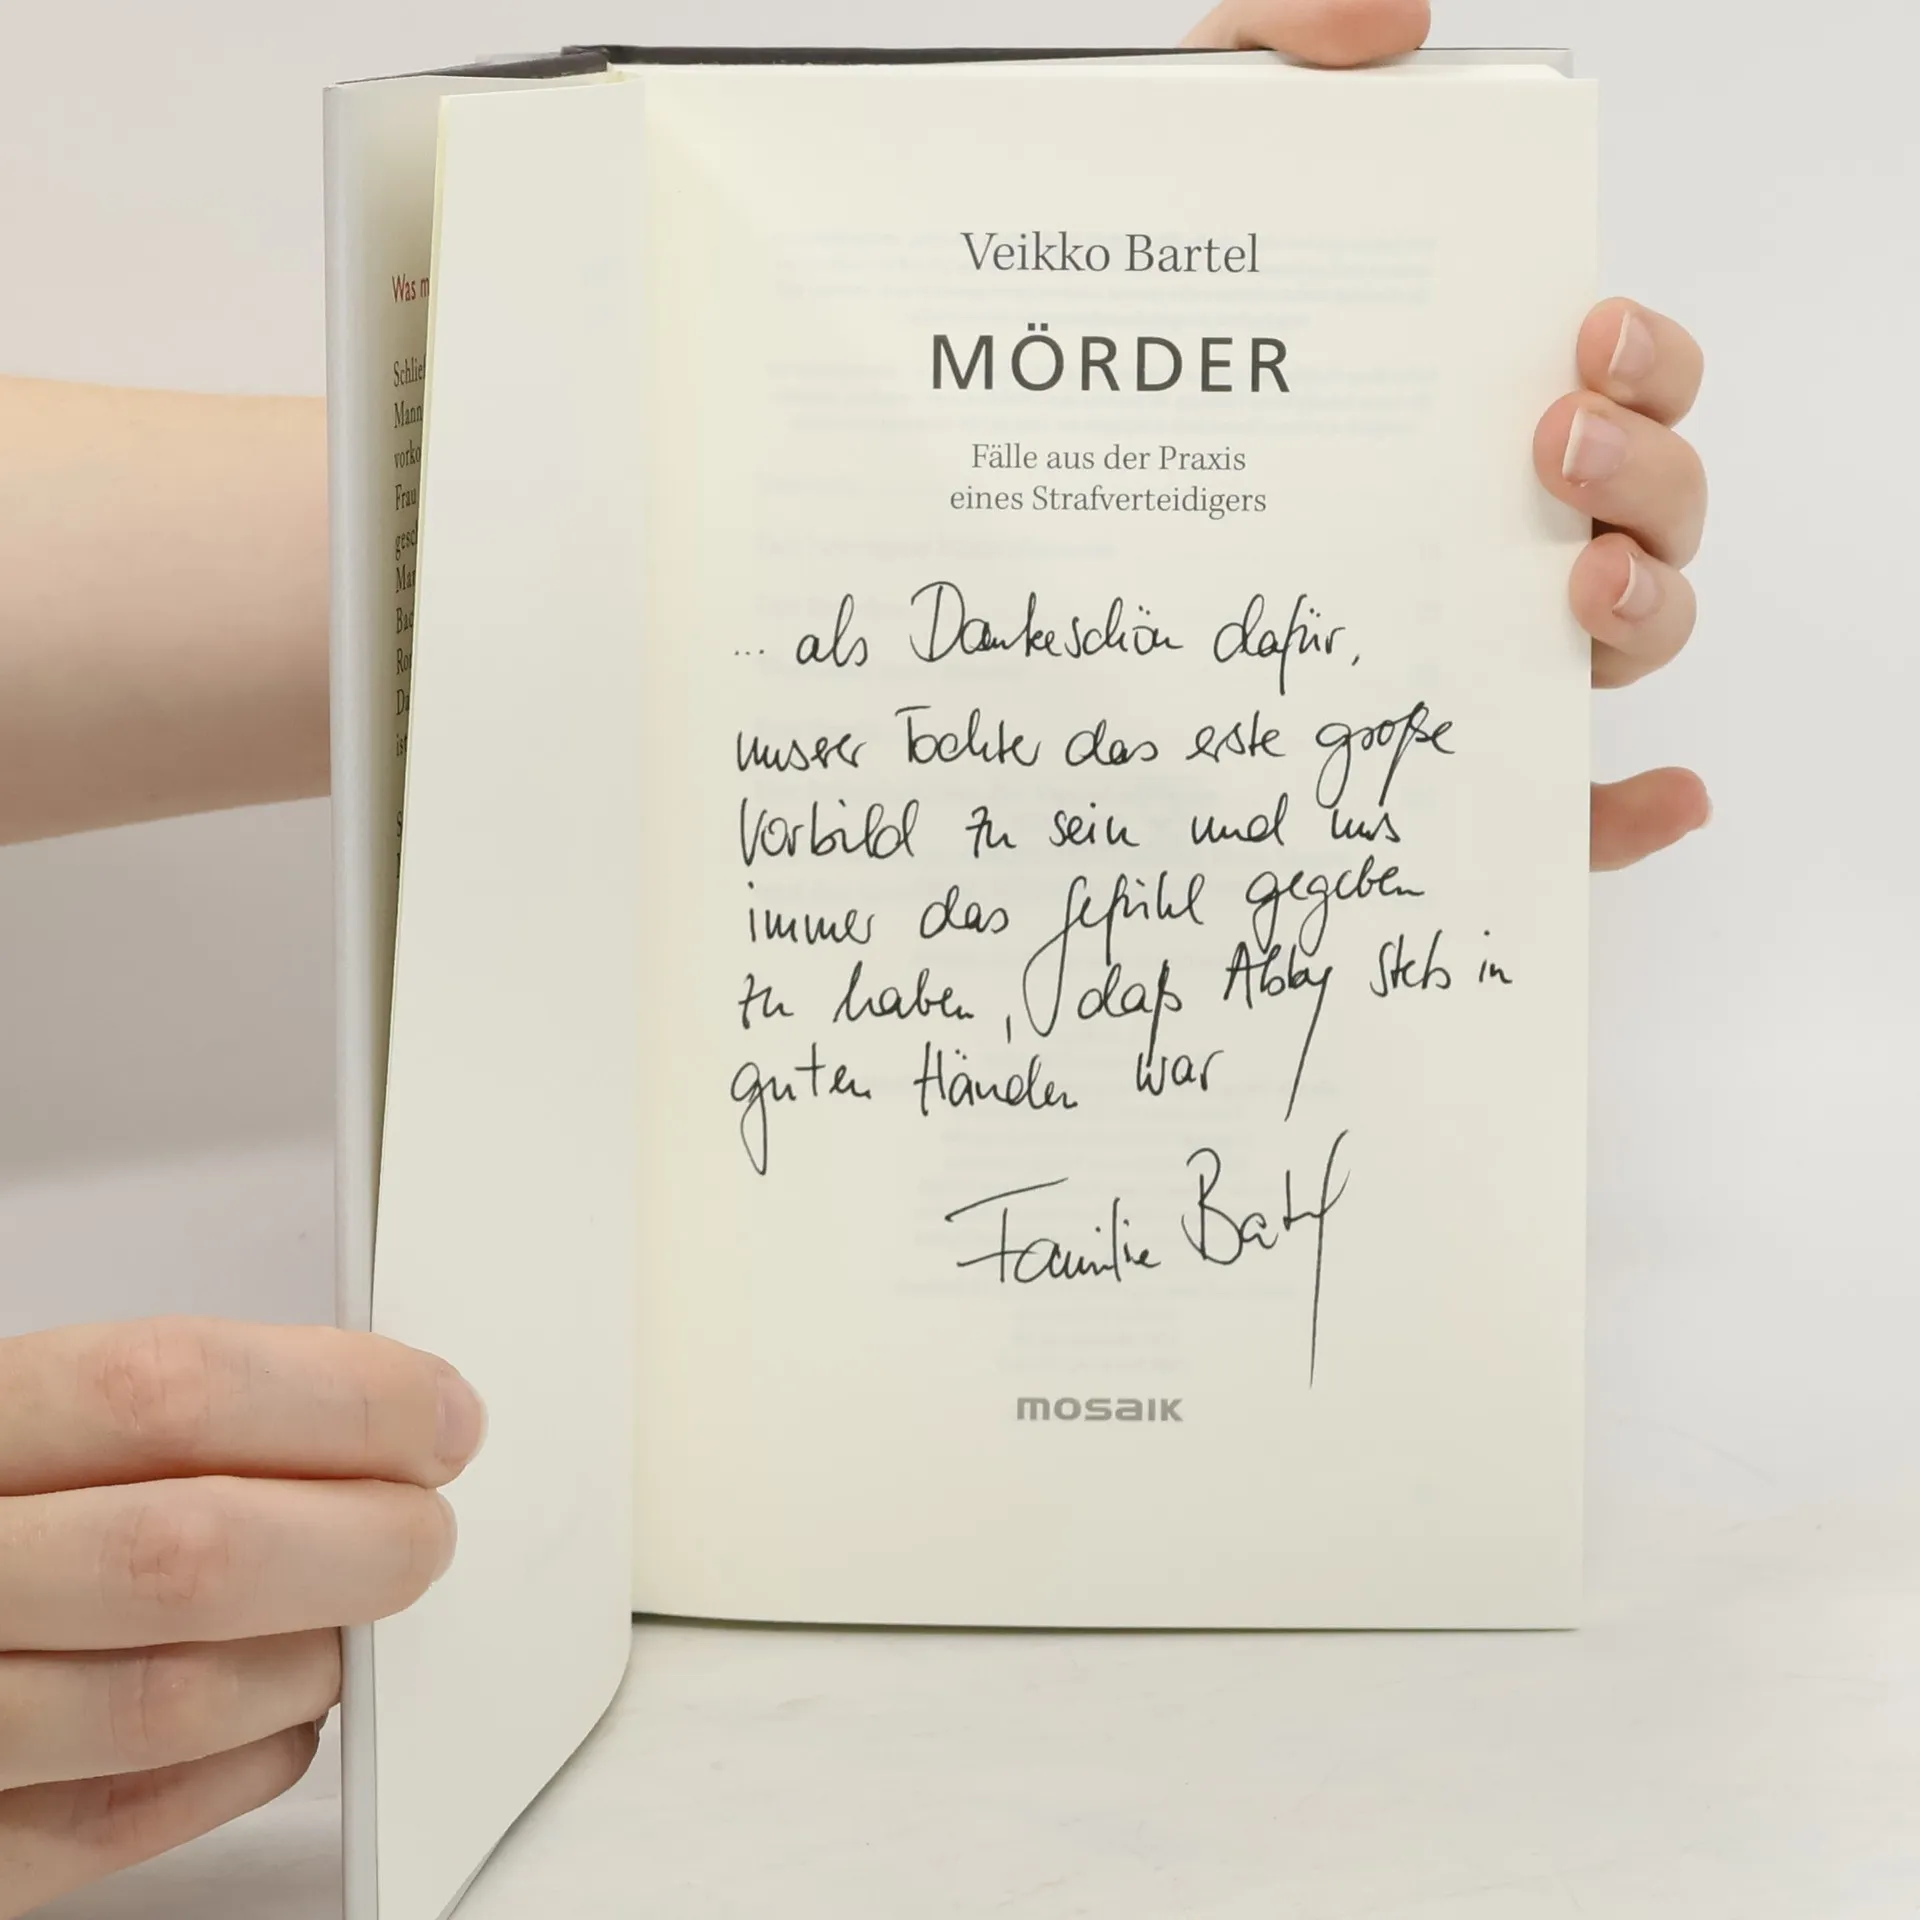 Was m
Schlie
Mann
vorko
Frau
gesc
Ma
Bac
Ro
Da
ist
Veikko Bartel
MÖRDER
Fälle aus der Praxis
eines Strafverteidigers
... als Dankeschön dafür,
unserer Tochter das erste große
Vorbild zu sein und uns
immer das Gefühl gegeben
zu haben, daß Abby stets in
guten Händen war
Familie Bartel
mosaik